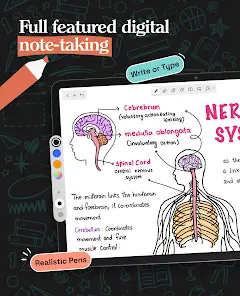 Full featured digital
note-taking
Write or Type
Cerebrum
(voluntary action eating
working)
medulla oblongata
(involuntary action)
spinal Cord
central nervous
system
NER
SYS
The midbrain links the hindbrain
and forebrain, it co-ordinates
movement
Cerebellum: Coordinates
movement and fine
muscle Control.
Realistic Pens